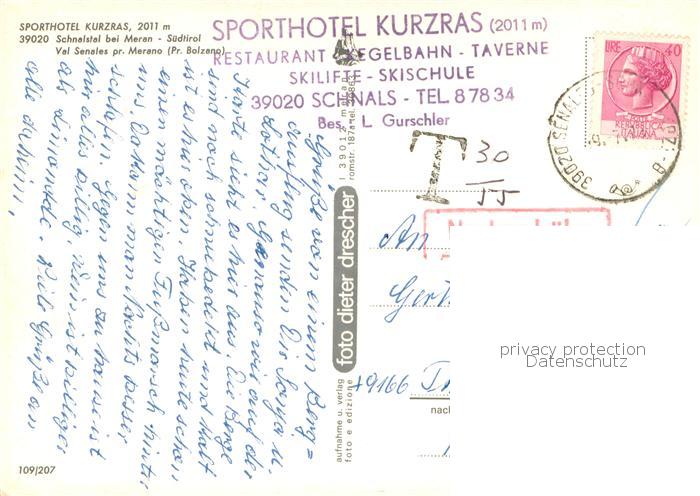 SPORTHOTEL KURZRAS, 2011 m
39020 Schnalstal bei Meran - Südtirol
Val Senales pr. Merano (Pr. Bolzano)
SPORTHOTEL KURZRAS (2011 m)
RESTAURANT - KEGELBAHN - TAVERNE
SKILIFTE - SKISCHULE
39020 SCHNALS - TEL. 8 78 34
Bes. L. Gurschler
LIRE 40
REPUBBLICA
ITALIANA
39020 SENALES
T 30
55
Grüße von einem Berg=
ausflug senden Dir Sonja u.
Lothar. Genauso wie auf der
Karte sieht es hier aus. Die Berge
sind noch schneebedeckt und kalt
ist es hier oben. Haben heute schon
einen mächtigen Fußmarsch hinter
uns. Da kann man nachts besser
schlafen. Gegen uns zu Hause ist
hier alles billig, Wein ist billiger
als Limonade. Viele Grüße an
alle daheim,
foto dieter drescher
aufnahme u. verlag
foto e edizione
An
Ger
79166
nach
109/207
privacy protection
Datenschutz